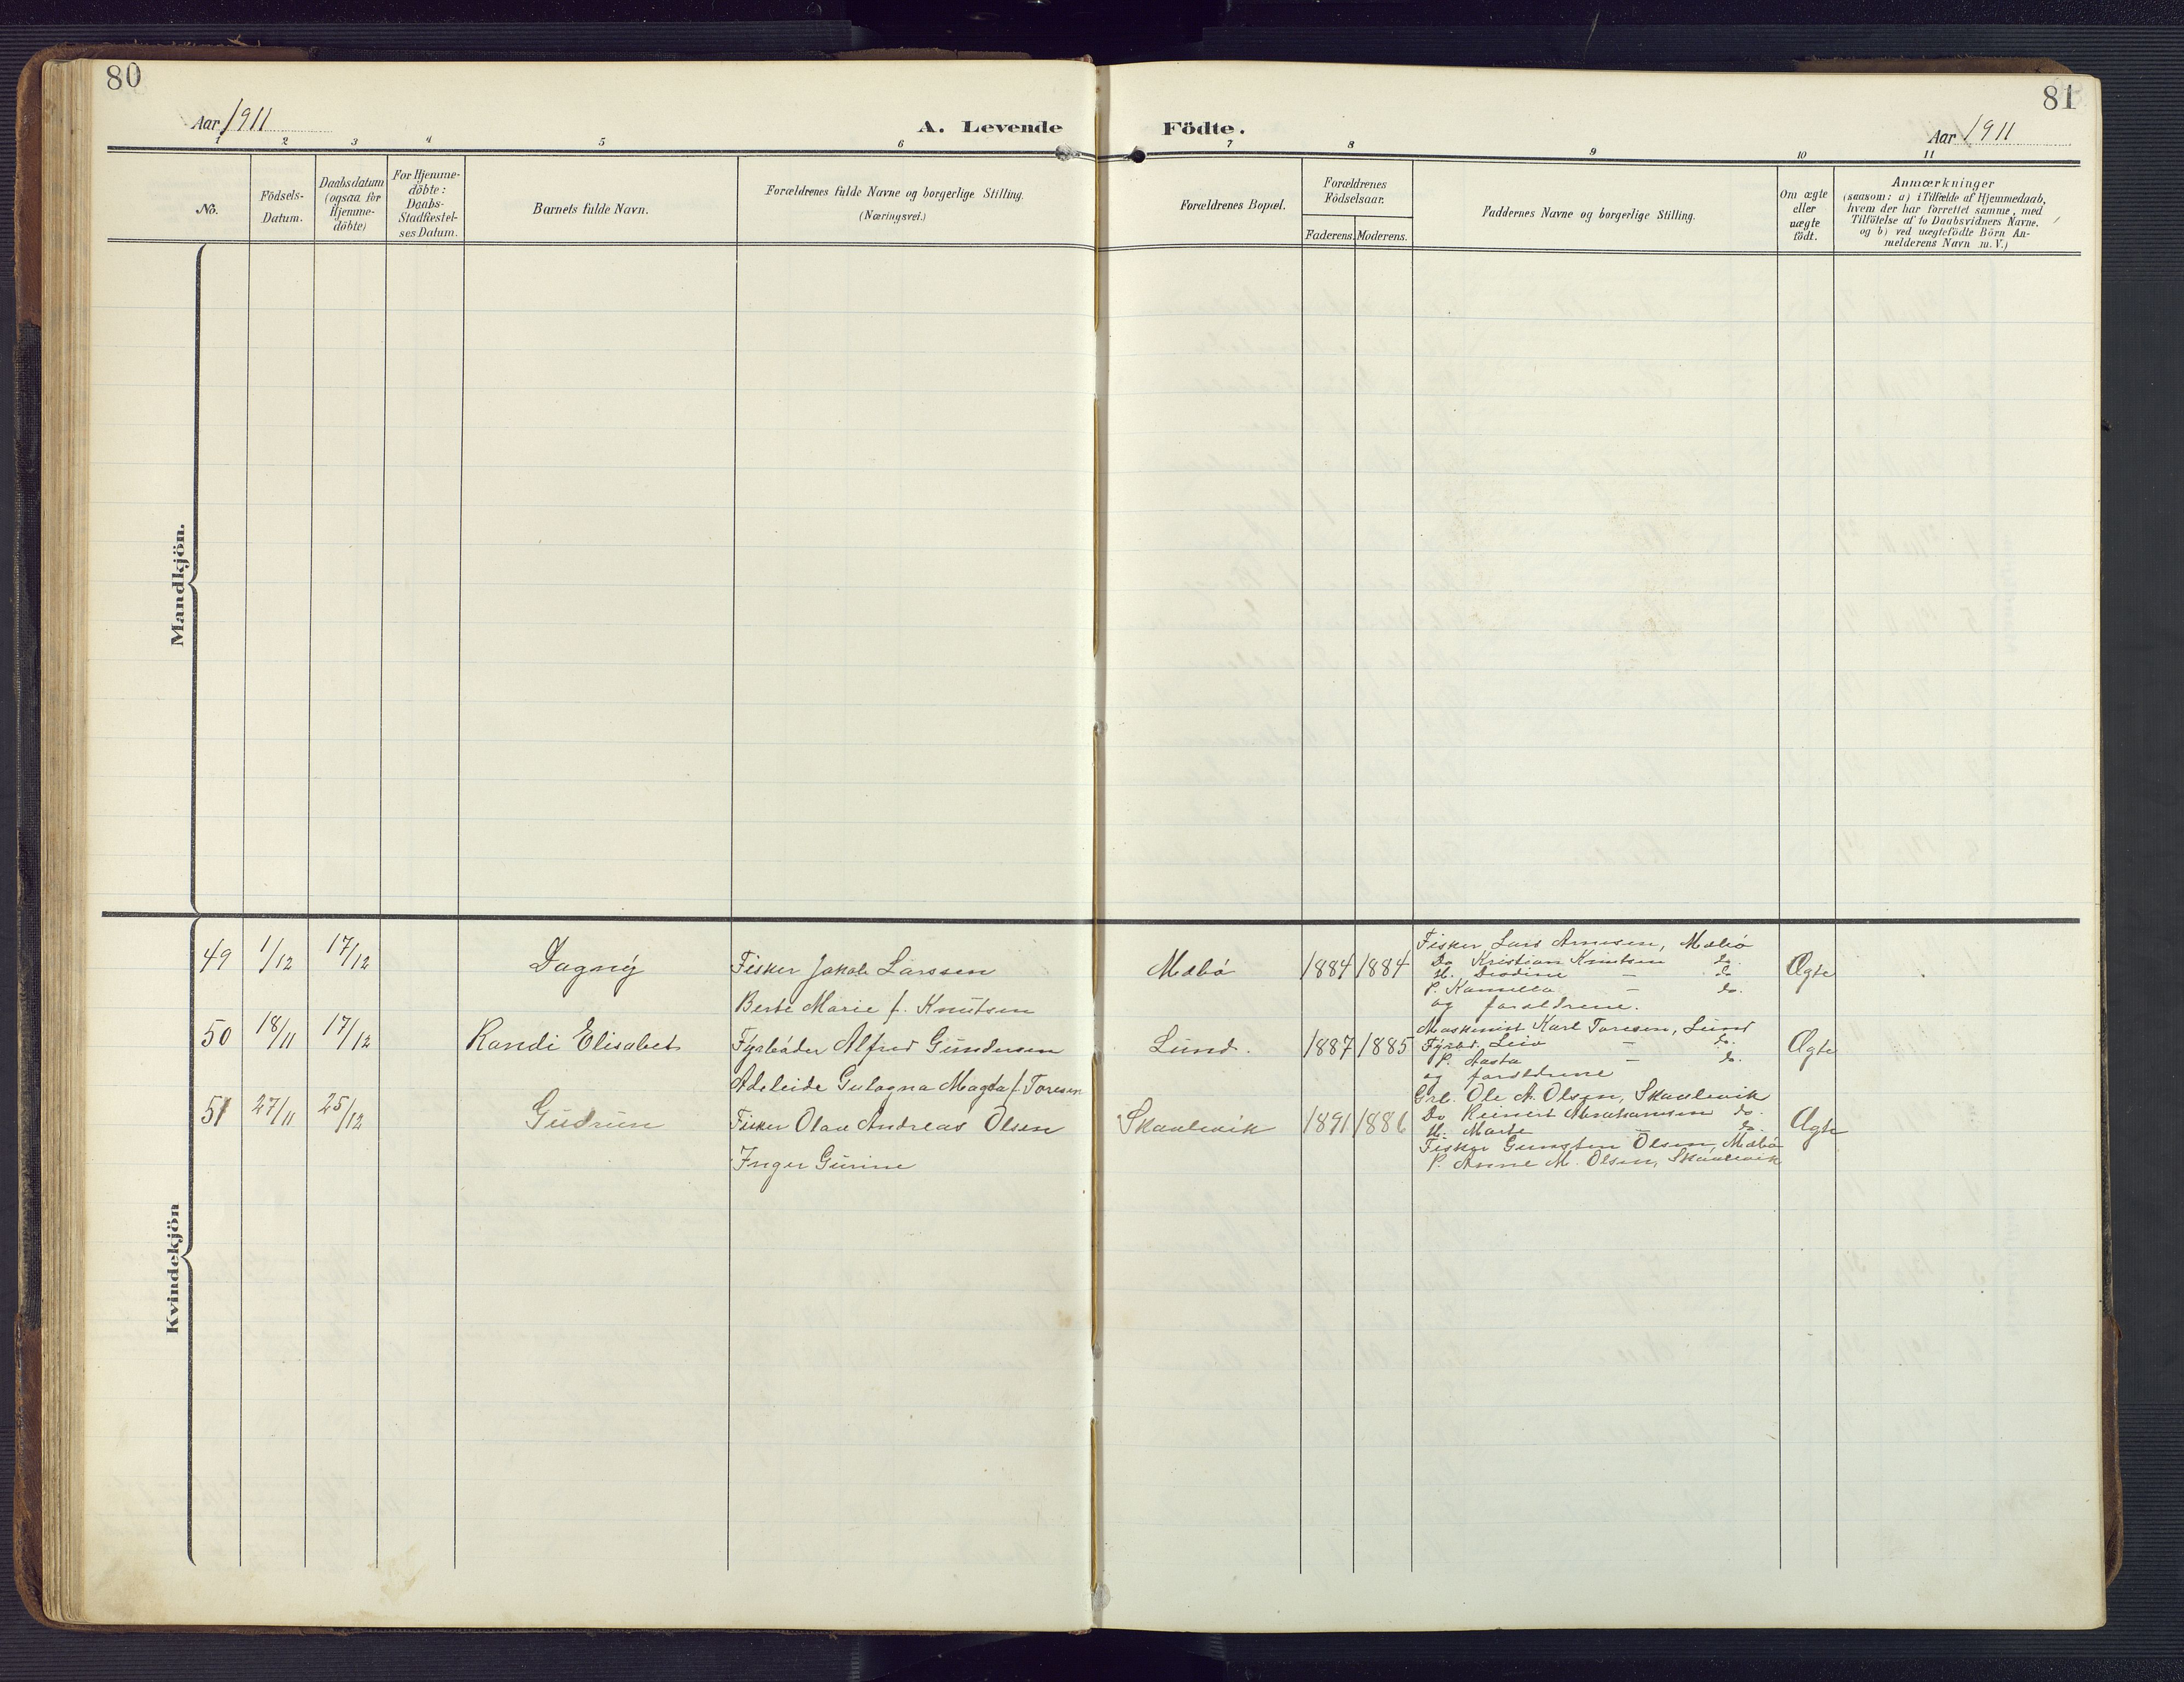 80
81
Aar 1911
A. Levende Födte.
Aar 1911
1 2 3 4 5 6 7 8 9 10 11
No.
Födsels-
Datum.
Daabsdatum
(ogsaa for
Hjemme-
döbte)
For Hjemme-
döbte:
Daabs-
Stadfestel-
ses Datum.
Barnets fulde Navn.
Forældrenes fulde Navne og borgerlige Stilling.
(Næringsvei.)
Forældrenes Bopæl.
Forældrenes
Födselsaar.
Faderens. Moderens.
Faddernes Navne og borgerlige Stilling.
Om ægte
eller
uægte
födt.
Anmærkninger
(saasom: a) i Tilfælde af Hjemmedaab,
hvem der har forrettet samme, med
Tilföielse af to Daabsvidners Navne.
og b) ved uægtefödte Börn An-
melderens Navn m. V.)
Mandkjön.
Kvindekjön
49 1/12 17/12 Dagny
Fisker Jakob Larssen
Berte Marie f. Knutsen
Mæbø 1884 1884
Fisker Lars Arnesen, Mæbø
Do Kristian Knutsen do.
H. — do
P. Kamilla — do.
og forældrene.
Ægte
50 18/11 17/12 Randi Elisabet
Fyrbøder Alfred Gundersen
Adeleide Gulagna Magda f. Toresen
Lund. 1887 1885
Maskinist Karl Toresen, Lund
Fyrbd. — do.
P. Aasta — do.
og forældrene
Ægte
51 27/11 25/12 Gudrun
Fisker Olav Andreas Olsen
Inger Gurine
Skaalevik 1891 1886
Grb. Ole A. Olsen, Skaalevik
Do Reinert Abrahamsen do.
H. Marte — do.
Fisker Gunsten Olsen, Mæbø
P. Anne M. Olsen, Skaalevik
Ægte